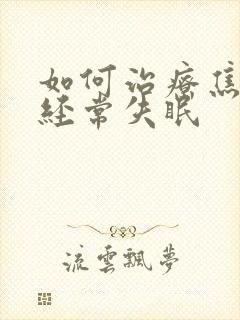 如何治療焦
經常失眠
流雲飄夢